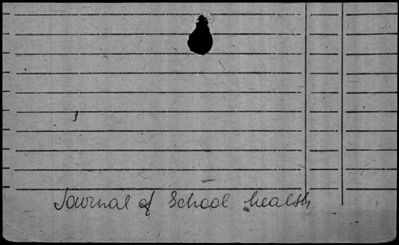 Journal of School health